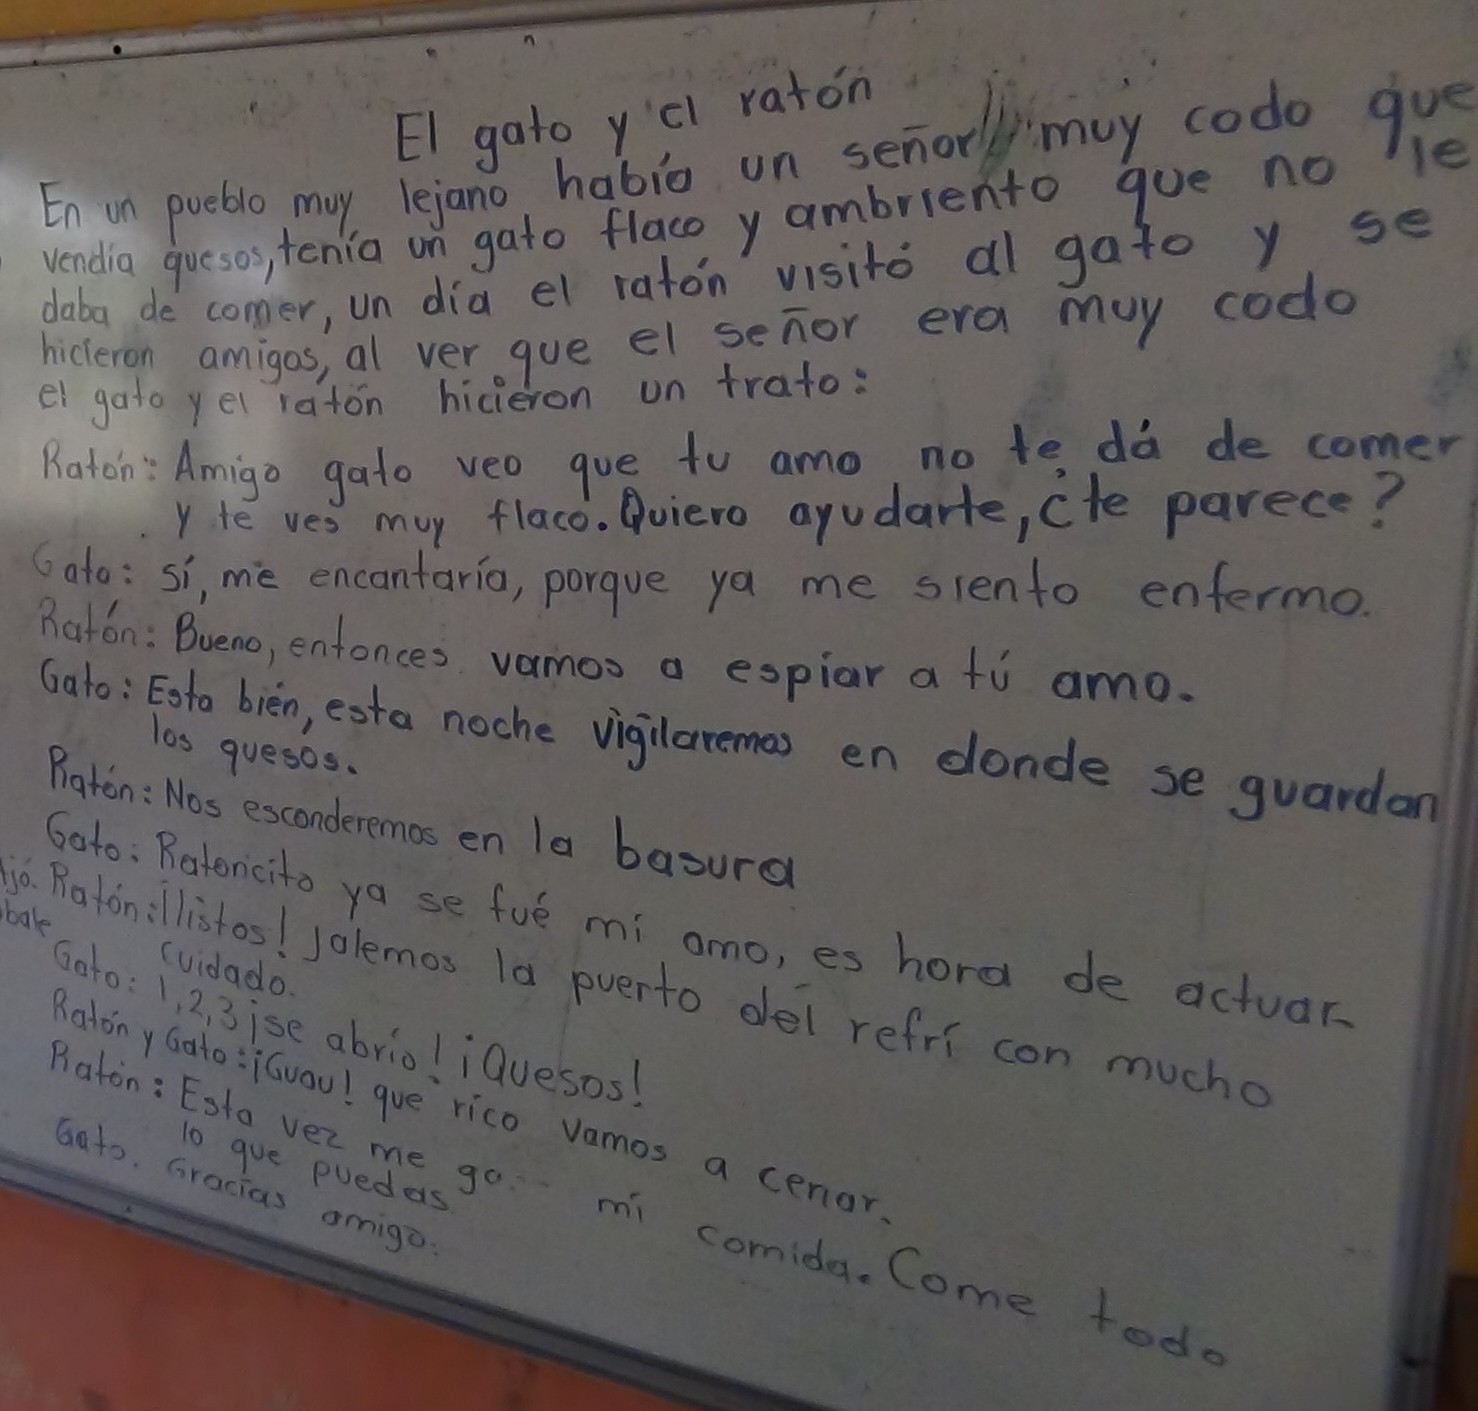 El gato y el ratón
En un pueblo muy lejano había un señor muy codo que
vendía quesos, tenía un gato flaco y ambriento que no le
daba de comer, un día el ratón visitó al gato y se
hicieron amigos, al ver que el señor era muy codo
el gato y el ratón hicieron un trato:
Ratón: Amigo gato veo que tu amo no te dá de comer
y te ves muy flaco. Quiero ayudarte, ¿te parece?
Gato: sí, me encantaría, porque ya me siento enfermo.
Ratón: Bueno, entonces vamos a espiar a tú amo.
Gato: Esta bien, esta noche vigilaremos en donde se guardan
los quesos.
Ratón: Nos esconderemos en la basura
Gato: Ratoncito ya se fué mi amo, es hora de actuar
Ratón: ¡listos! Jalemos la puerta del refrí con mucho
cuidado.
Gato: 1, 2, 3 ¡se abrío! ¡Quesos!
Ratón y Gato: ¡Guau! que rico vamos a cenar.
Ratón: Esta vez me mi comida. Come todo
lo que puedas
Gato. Gracias amigo.